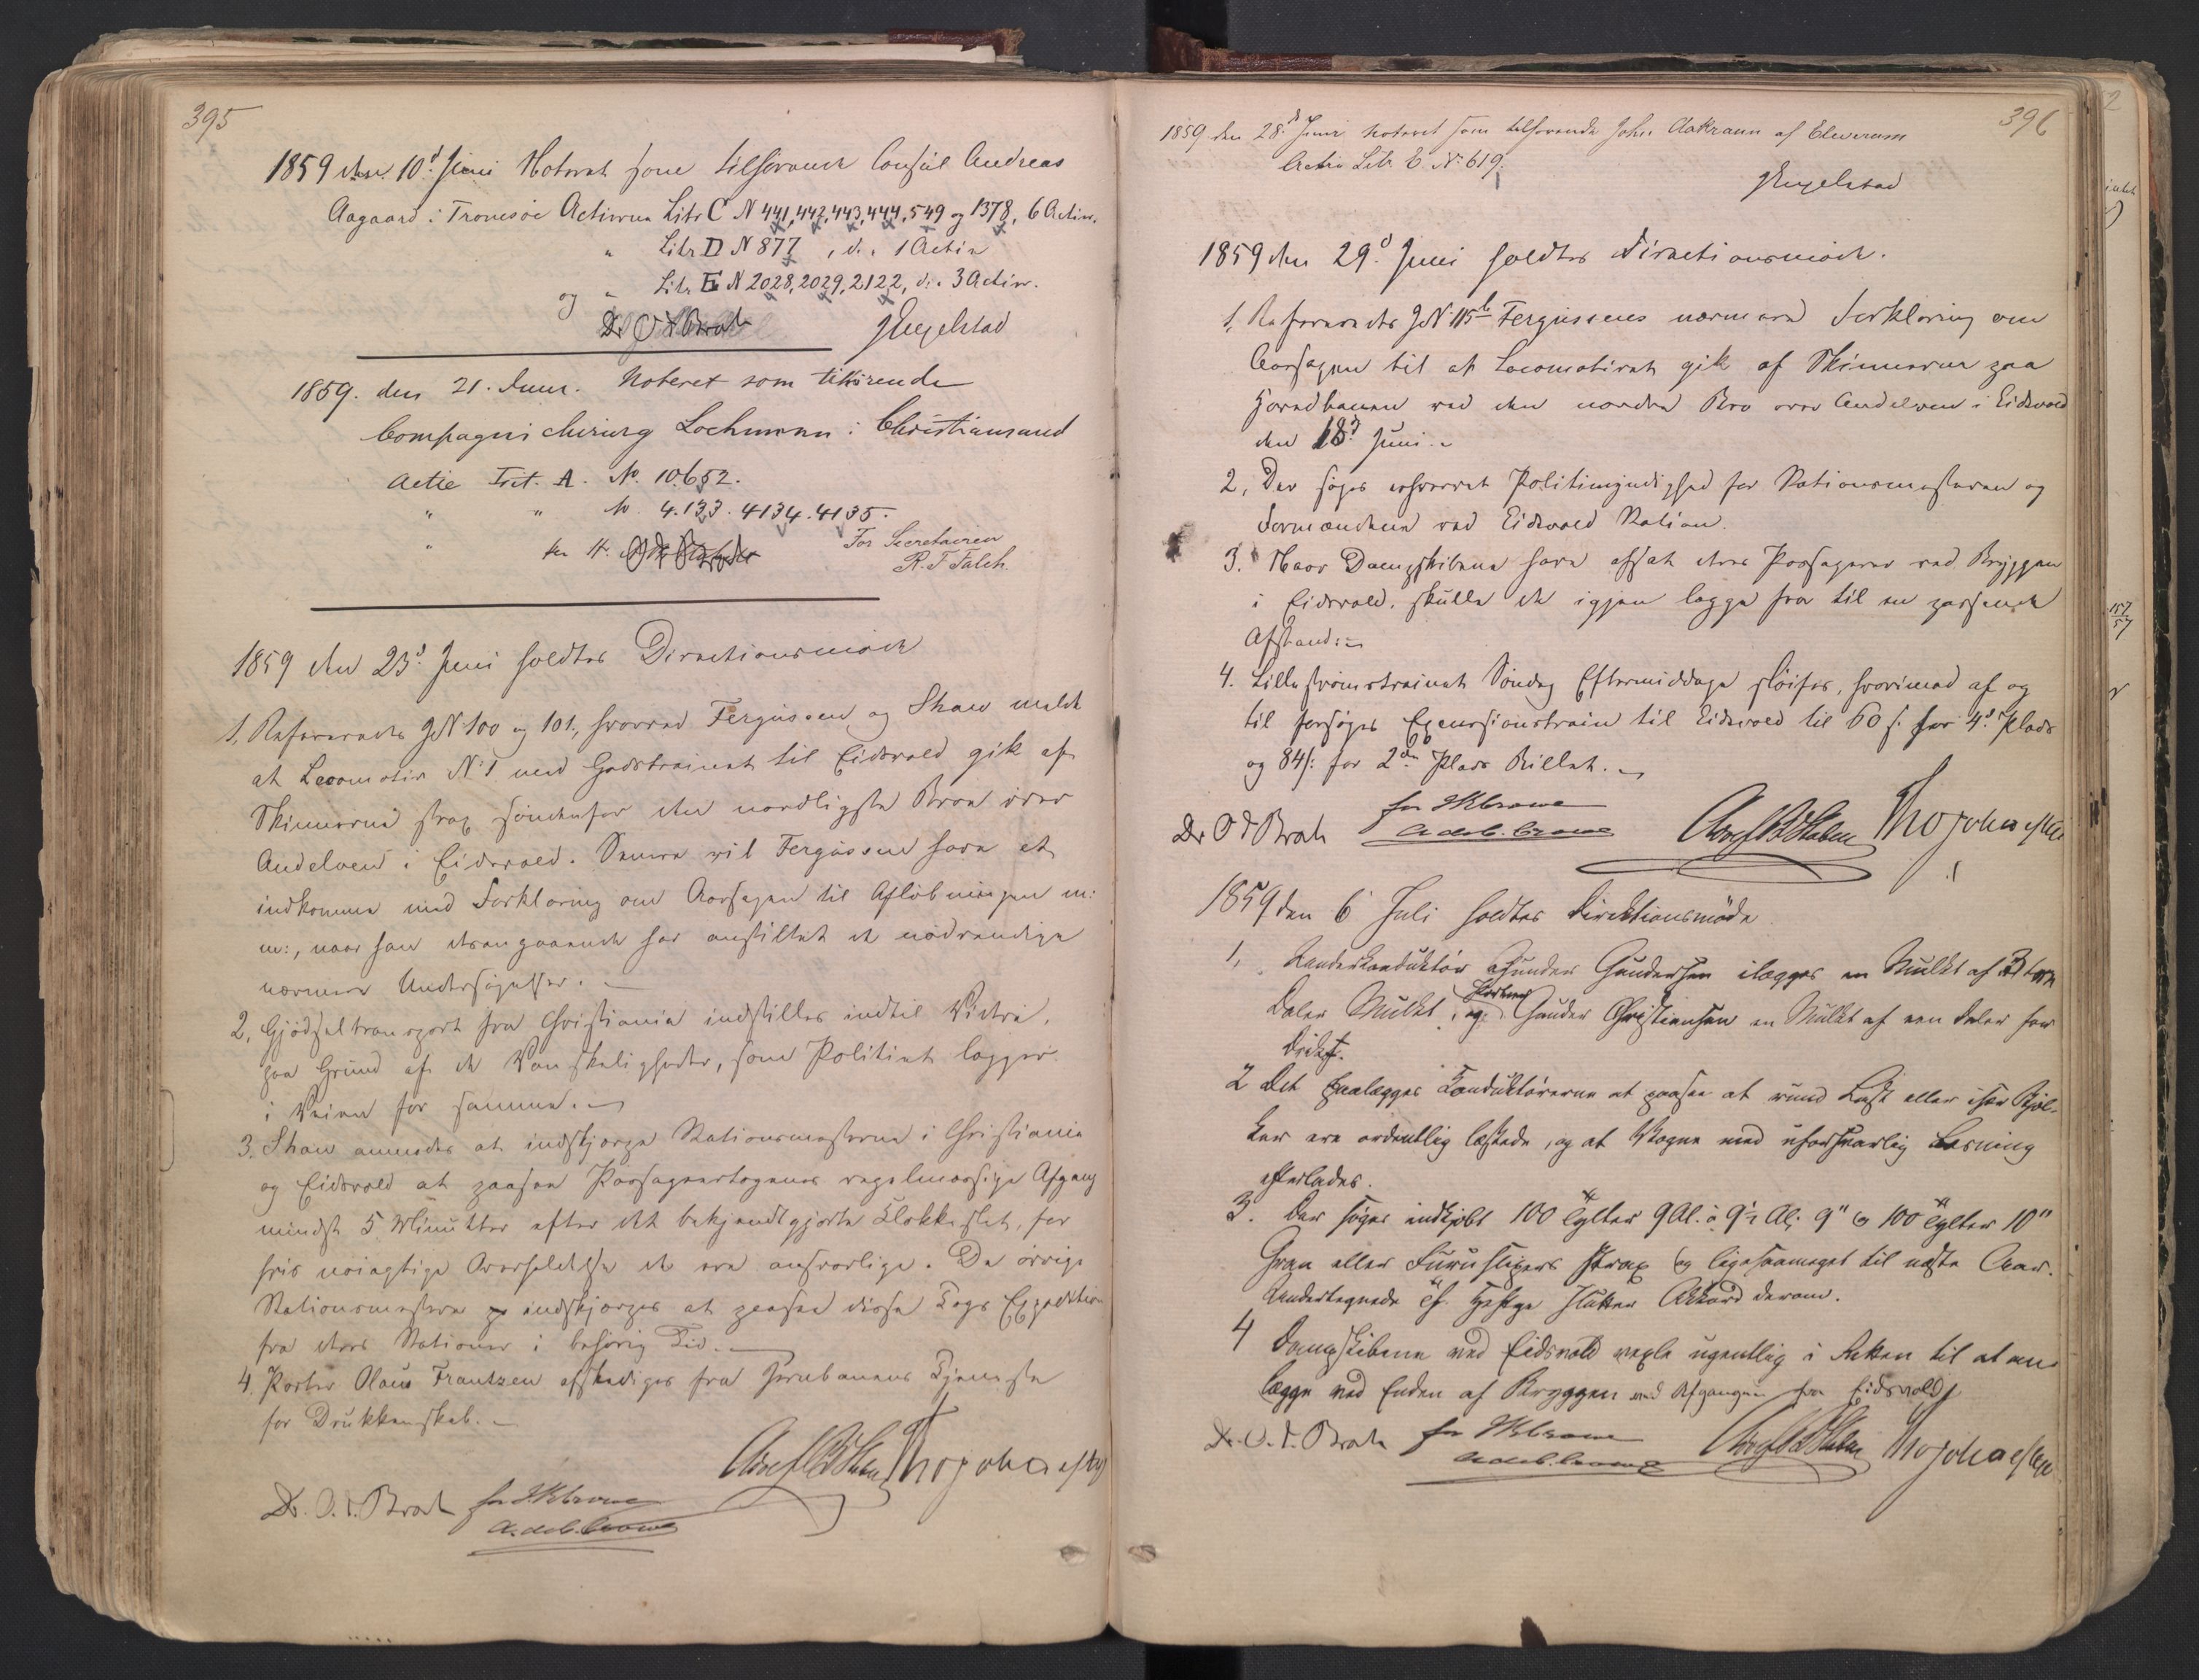 395
1859 den 10d Juni Noteret som tilhørende Consul Andreas
Aagaard i Tromsøe Actierne Litr C N 441, 442, 443, 444, 549 og 1378, 6 Actier.
" Litr D N 877, d: 1 Actie
og " Litr E N 2028, 2029, 2122, d: 3 Actier.
JEngelstad
1859. den 21. Juni. Noteret som tilhörende
Compagnichirurg Lochmann i Christiansand
Actie Lit. A. No. 10.652.
" " No 4.133. 4134. 4135.
For Secretairen
R. F. Falch.
1859 den 23d Juni holdtes Directionsmøde
1, Refereredes JN 100 og 101, hvorved Fergusson og Shaw meldte
at Locomotiv N. 1 med Godstrainet til Eidsvold gik af
Skinnerne strax søndenfor den nordligste Broe over
Andelven i Eidsvold. Senere vil Fergusson have at
indkomme med Forklaring om Aarsagen til Afløbningen m:
m:, naar han desangaaende har anstillet de nødvendige
nærmere Undersøgelser. –
2, Gjødseltransport fra Christiania indstilles indtil Videre,
paa Grund af de Vanskeligheder, som Politiet lægger
i Veien for samme. –
3. Shaw anmodes at indskjærpe Stationsmesterne i Christiania
og Eidsvold at paasee Passagertogenes regelmæssige Afgang
mindst 5 Minutter efter det bekjendtgjorte Klokkeslet, for
hvis nøiagtige Overholdelse de ere ansvarlige. De øvrige
Stationsmestere indskjærpes at paasee disse Togs Expedition
fra deres Stationer i behørig Tid. –
4. Porter Olaus Frantzen afskediges fra Jernbanens Tjeneste
for Drukkenskab. –
Dr. O. J. Broch for JRCrowe
A. deC. Crowe
Tho Johannessen
396
1859 den 28d Juni noteret som tilhørende John Aakrann af Elverum
Actie Litr. E. No 619.
JEngelstad
1859 den 29d Juni holdtes Directionsmøde.
1, Refereredes JN 115b Fergussons nærmere Forklaring om
Aarsagen til at Locomotivet gik af Skinnerne paa
Hovedbanen ved den nordre Bro over Andelven i Eidsvold
den 18d Juni. –
2, Der søges erhvervet Politimyndighed for Stationsmesteren og
Formændene ved Eidsvold Station.
3. Naar Dampskibene have afsat deres Passagerer ved Bryggen
i Eidsvold, skulle de igjen lægge fra til en passende
Afstand. –
4. Lillestrømstrainet Søndag Eftermiddage sløifes, hvorimod af og
til forsøges Excursionstrain til Eidsvold til 60 s. for 4d Plads
og 84 s: for 2den Plads Billet. –
Dr O J Broch for JRCrowe
A deC. Crowe
Tho Johannessen
1859 den 6 Juli holdtes Direktionsmöde
1, Underkonduktör Gunder Gundersen ilægges en Mulkt af 2 to
Daler Mulkt, og Portner Gunder Christiansen en Mulkt af een Daler for
2 Det paalægges Konduktörerne at paasee at rund Last eller især Bjel-
ker ere ordentlig læssede, og at Vogne med uforsvarlig Læsning
efterlades.
3. Der söges indkjöbt 100 Tylter 9 Al. à 9½ Al: 9" og 100 Tylter 10"
Gran eller Furu slipers strax og ligesaameget til næste Aar.
Undertegnede slutter Akkord derom.
4 Dampskibene ved Eidsvold vexle ugentlig i Retten til at an-
lægge ved Enden af Bryggen ved Afgangen fra Eidsvold
Dr. O. J. Broch for JRCrowe
A deC. Crowe
Tho Johannessen